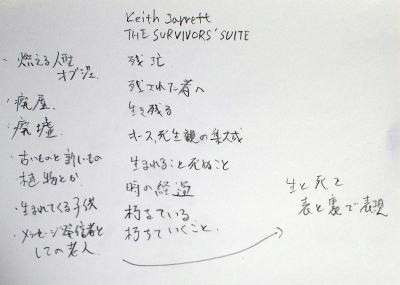 Keith Jarrett
THE SURVIVORS' SUITE
・燃える人型
オブジェ
・廃屋
・廃墟
・古いものと新しいもの
植物とか
・生まれてくる子供
・メッセージ発信者と
しての老人
残
残された者へ
生き残る
死生観の集大成
生まれること死ぬこと
時の経過
朽ちている
朽ちていくこと。
生と死を
表と裏で表現